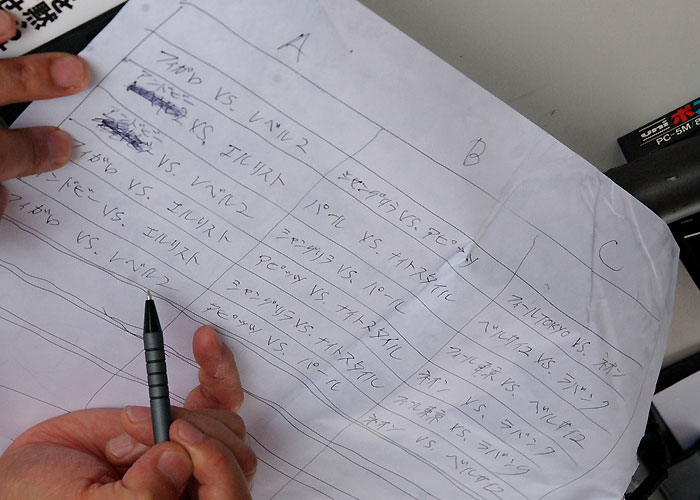 A
フィガロ VS. レベル2
アンドビー VS. エルリスト
アンドビー VS. レベル2
フィガロ VS. エルリスト
ンドビー VS. エルリスト
フィガロ VS. レベル2
B
シャングリラ VS. アピッツ
パール VS. ナイトスタイル
シャングリラ VS. パール
アピッツ VS. ナイトスタイル
シャングリラ VS. ナイトスタイル
アピッツ VS. パール
C
フォールTOKYO VS. ネオン
ベルサイユ VS. ラバンク
フォール東京 VS. ベルサイユ
ネオン VS. ラバンク
フォール東京 VS. ラバンク
ネオン VS. ベルサイユ
uni
PC-5M/8